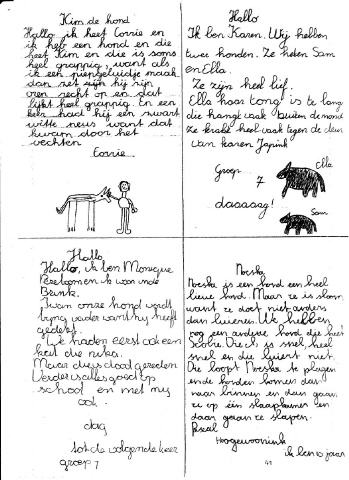 Kim de hond
Hallo ik heet Corrie en
ik heb een hond en die
heet Kim en die is soms
heel grappig, want als
ik een piepgeluidje maak
dan zet zijn hij zijn
oren recht op en dat
lijkt heel grappig. En een
keer had hij een zwart
witte neus want dat
kwam door het
vechten
Corrie
Hallo
Ik ben Karen. Wij hebben
twee honden. Ze heten Sam
en Ella.
Ze zijn heel lief.
Ella haar tong is te lang
die hangt vaak buiten de mond
ze krabt heel vaak tegen de deur
van Karen
Groep
7
Ella
daaaag!
Sam
Hallo
Hallo, ik ben Monique
ik woon in de
Bank.
van onze hond wordt
vader want hij heeft
gedekt.
We hadden eerst ook een
die
Maar die is dood gereden
Verder is alles goed op
school en met mij
ook.
dag
tot de volgende keer
groep 7
Noeska
Noeska is een hond een heel
lieve hond. Maar ze is sloom
want ze doet niet anders
dan luieren. We hebben
nog een andere hond die heet
Scobie. Die is snel, heel
snel en die luiert niet.
Die loopt Noeska te plagen
en de honden komen dan
naar binnen en dan gaan
ze op één slaapkamer en
daar gaan ze slapen.
ik ben 10 jaar